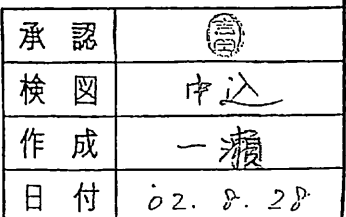 承認 吉田
検図 中込
作成 一瀬
日付 '02. 8. 28